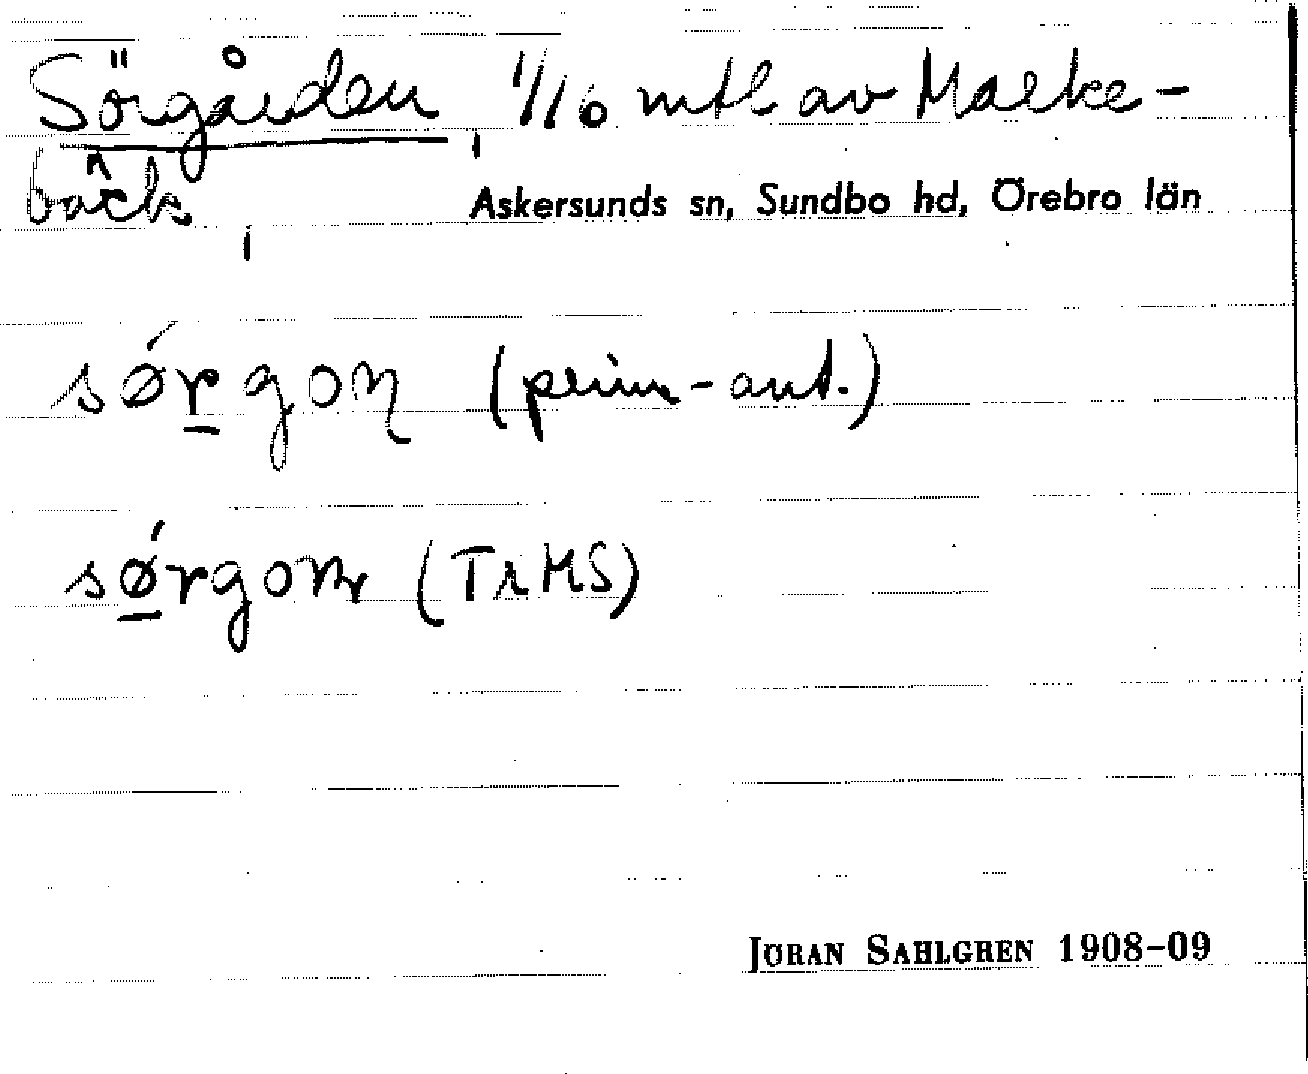 Sörgården, 1/16 mtl av Marke-
bäck,
Askersunds sn, Sundbo hd, Örebro län
sǿrgoɳ (prim-ant.)
sǿrgom (TrMS)
JÖRAN SAHLGREN 1908–09